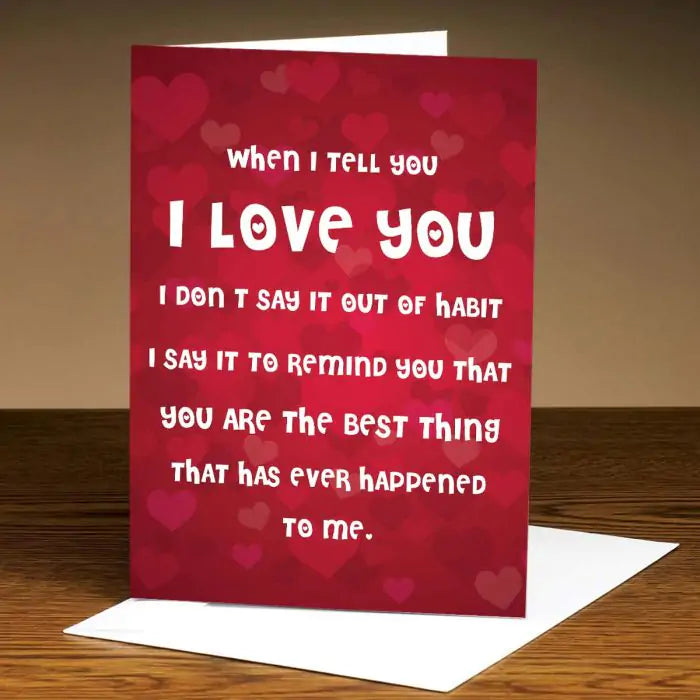 When I tell you
I LOVE YOU
I DON T SAY IT OUT OF HABIT
I SAY IT TO REMIND YOU THAT
YOU ARE THE BEST THING
THAT HAS EVER HAPPENED
TO ME.